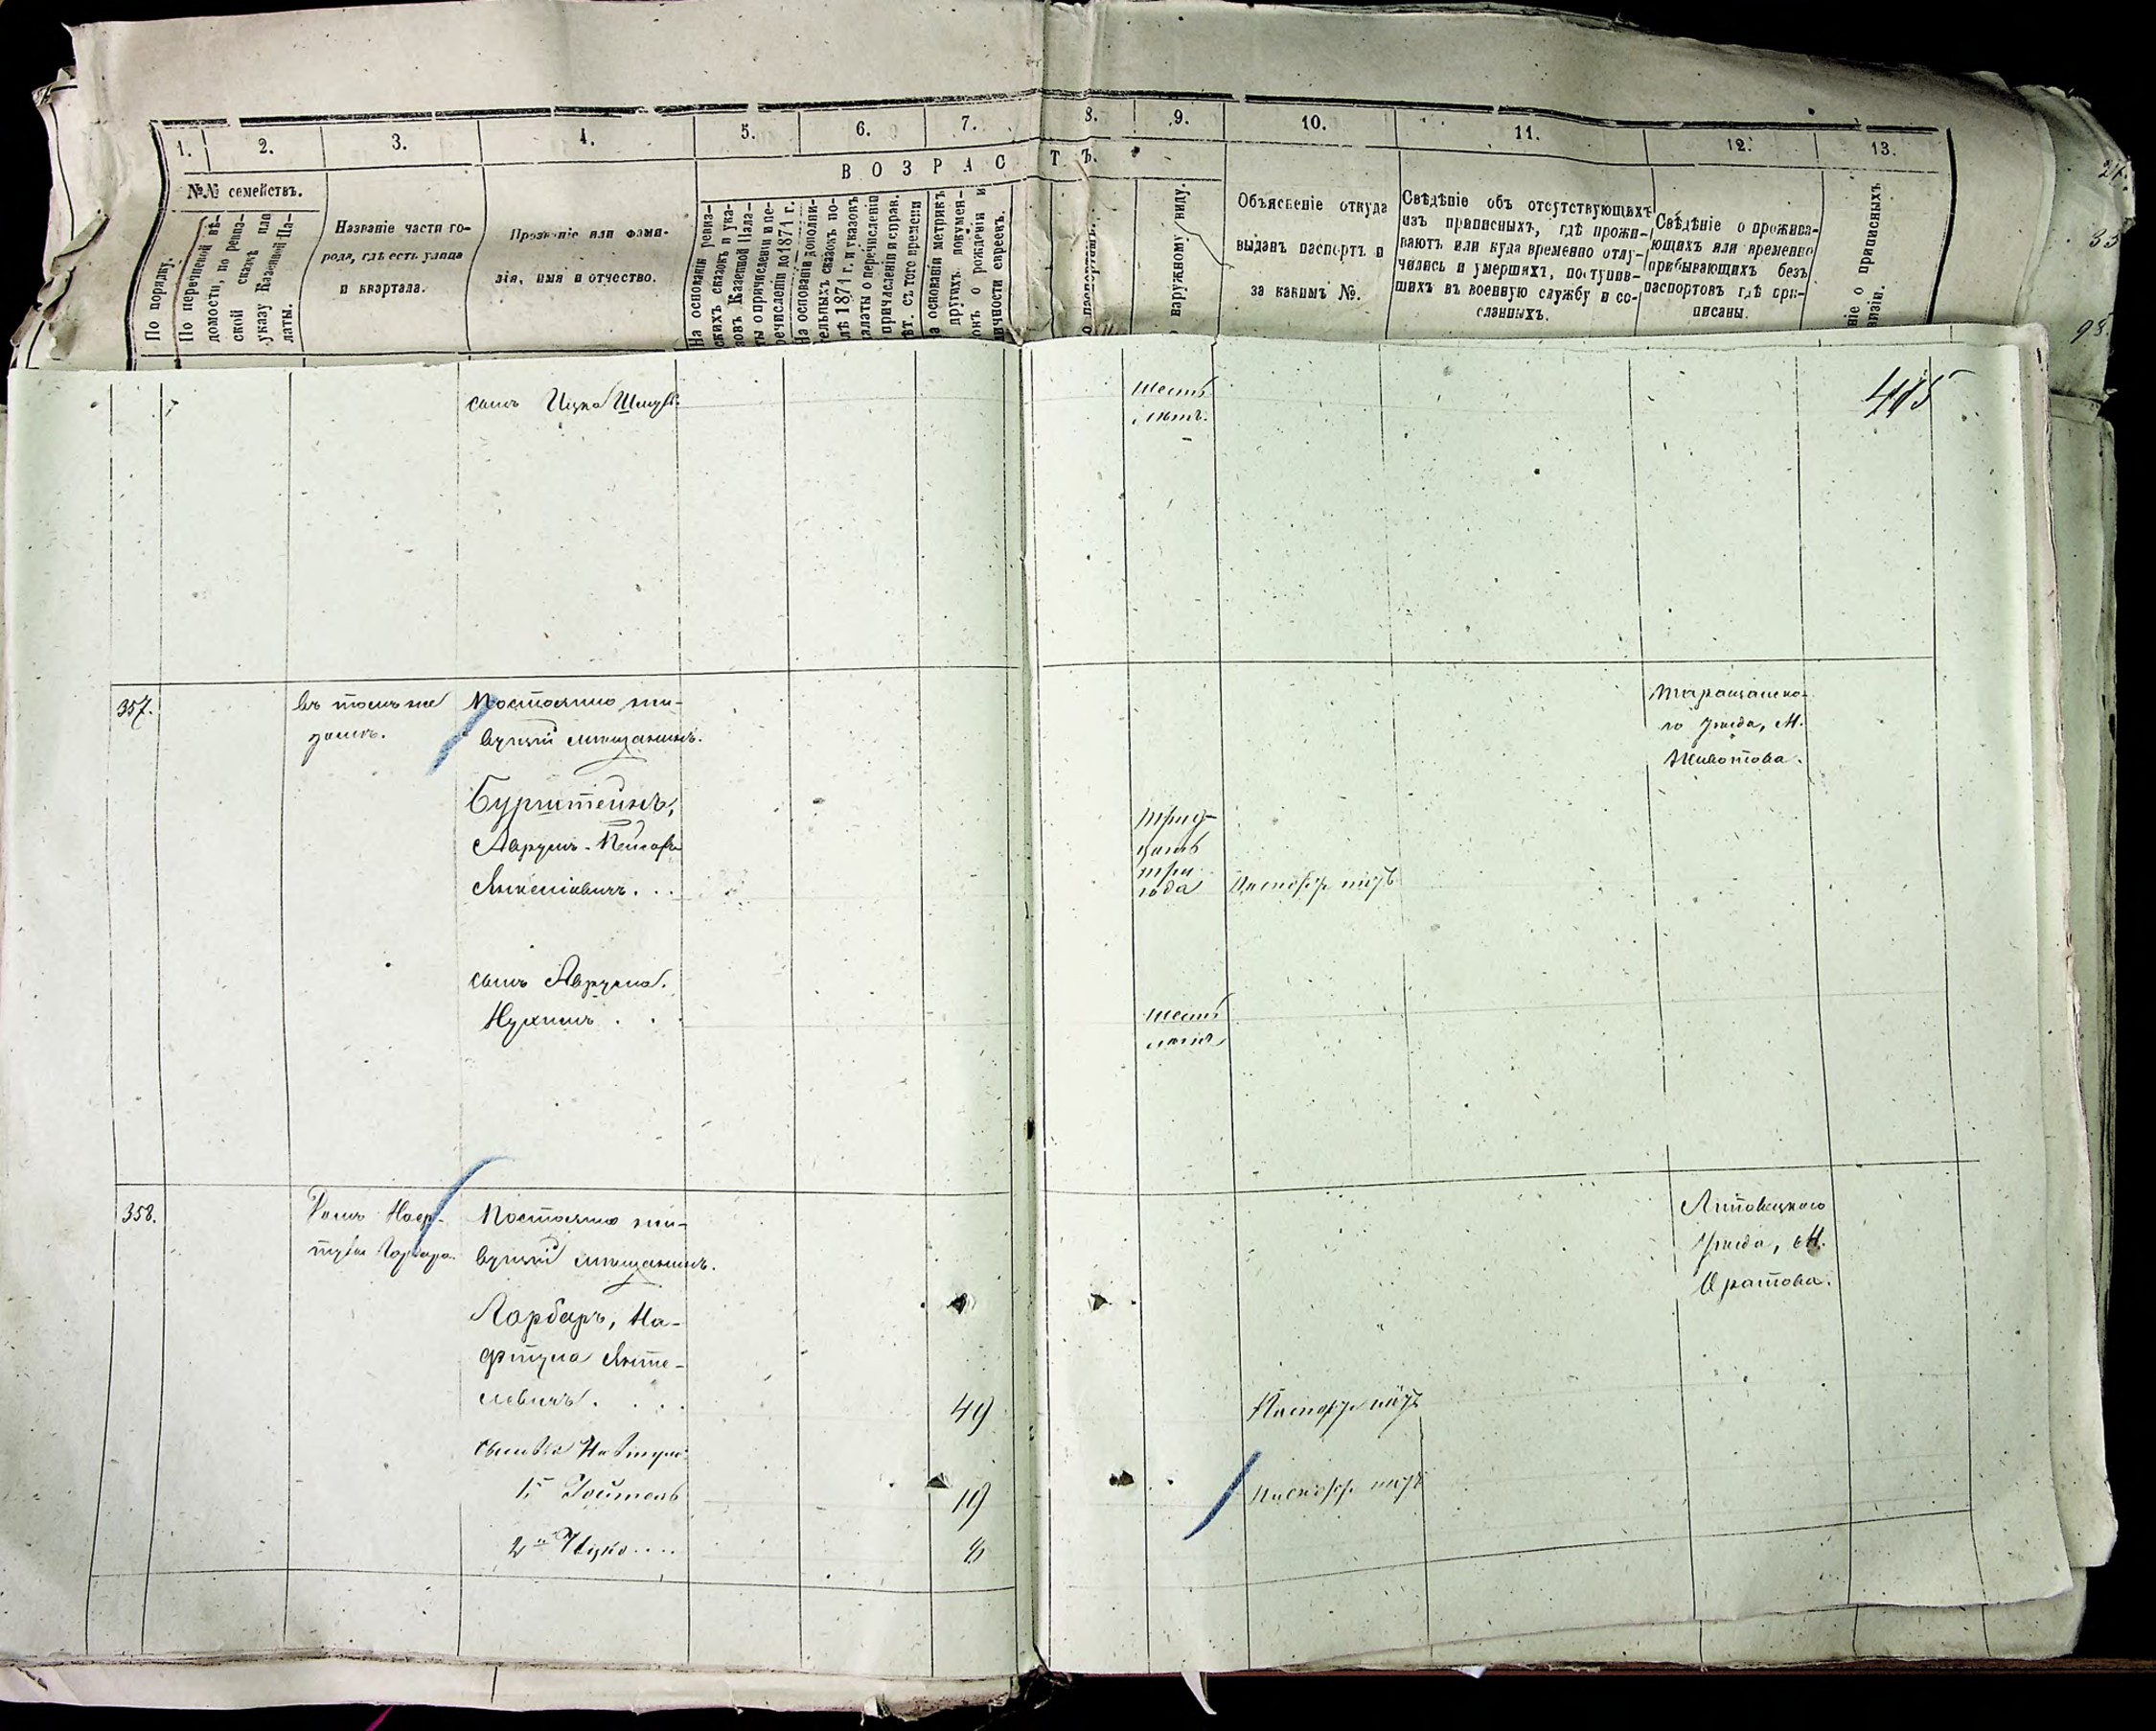 1. 2. 3. 4. 5. 6. 7. 8. 9. 10. 11. 12. 13.
ВОЗРАСТЪ.
№№ семействъ.
По порядку.
По перечневой вѣ-
домости, по ревиз-
ской сказкѣ или
указу Казенной Па-
латы.
Названіе части го-
рода, гдѣ есть улица
и квартала.
Прозваніе или фами-
лія, имя и отчество.
На основаніи ревиз-
скихъ сказокъ и ука-
зовъ Казенной Пала-
ты о причисленіи и пе-
речисленіи до 1874 г.
На основаніи дополни-
тельныхъ сказокъ по-
слѣ 1874 г. и указовъ
палаты о перечисленіи
причисленіи и справ.
съ того времени
На основаніи метрикъ
другихъ докумен-
о рожденіи и
личности евреевъ.
наружному виду.
Объясненіе откуда
выданъ паспортъ и
за какимъ №.
Свѣдѣніе объ отсутствующихъ
изъ приписныхъ, гдѣ прожи-
ваютъ или куда временно отлу-
чились и умершихъ, поступив-
шихъ въ военную службу и со-
сланныхъ.
Свѣдѣніе о прожива-
ющихъ или временно
прибывающихъ безъ
паспортовъ гдѣ при-
писаны.
о приписныхъ
сынъ Ицко
шесть
лѣтъ.
415
357.
въ томъ же
домѣ.
Постоянно жи-
вущій мѣщанинъ.
Бурштейнъ,
Аврумъ-Пейсахъ
Янкелевичъ. . .
трид-
цать
три
года
Таращанска-
го уѣзда, М.
Животова.
сынъ Аврума.
Нухимъ . . .
шесть
лѣтъ
358.
Домъ
Постоянно жи-
вущій мѣщанинъ.
Гарбаръ, На-
фтула
левичъ. . . .
49
сыновья Нафтулы
1й
19
2й Ицко ....
8
Липовецкаго
уѣзда, М.
Оратова.